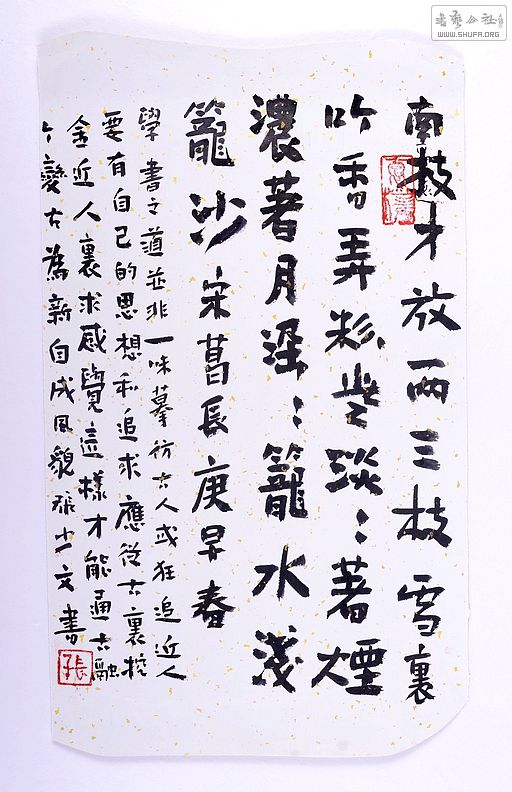 書藝公社
WWW.SHUFA.ORG
南枝才放兩三枝雪裏
吟香弄粉些淡:著煙
濃著月深:籠水淺
籠沙宋葛長庚早春
學書之道並非一味摹仿古人或狂追近人
要有自己的思想和追求應從古裏挖
近人裏求感覺這樣才能通古融
今變古為新自成風貌張文書